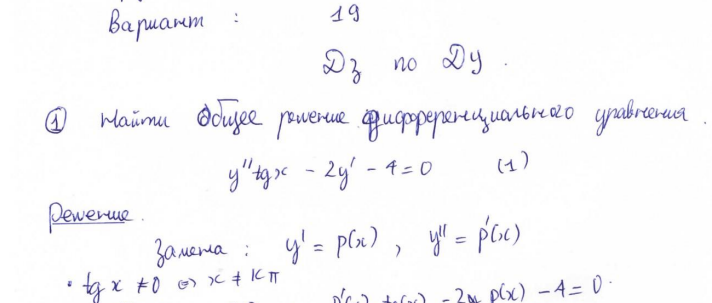 Вариант : 19
Дз по ДУ.
① Найти Общее решение дифференциального уравнения.
y'' tg x - 2y' - 4 = 0 (1)
Решение.
Замена : y' = p(x) , y'' = p'(x)
• tg x ≠ 0 ⇔ x ≠ kπ
p(x) - 4 = 0.